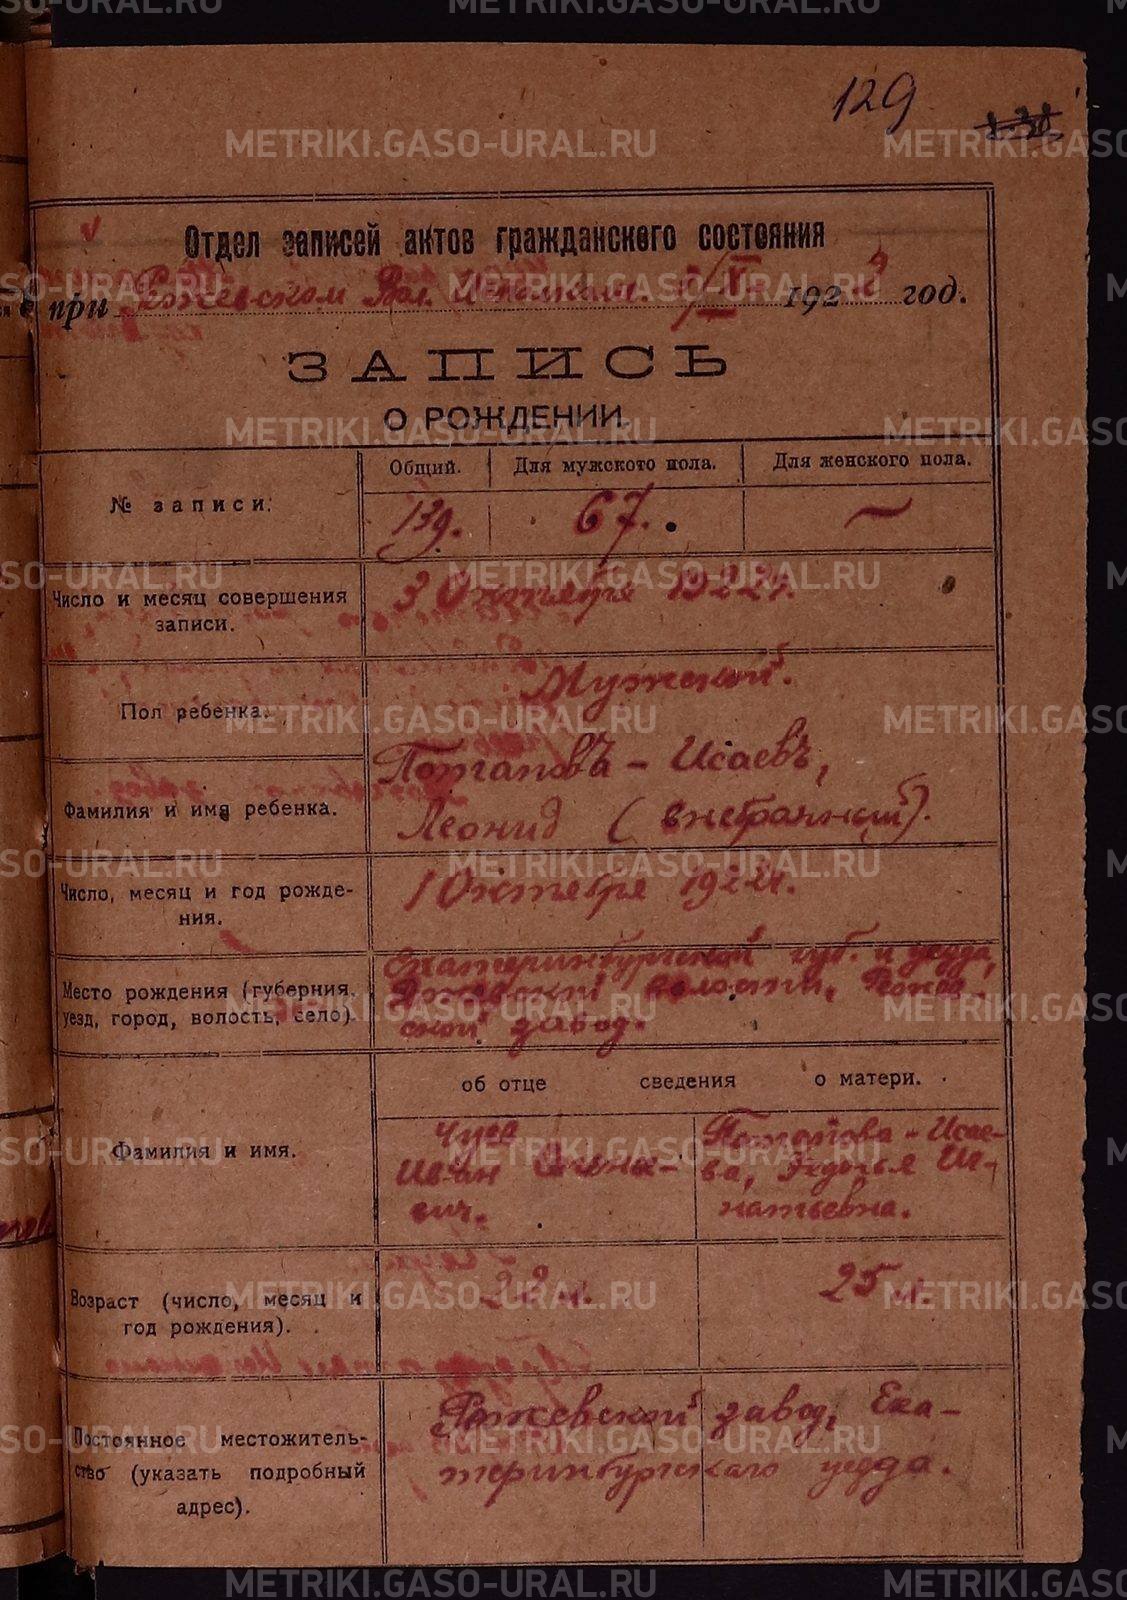 129
Отдел записей актов гражданского состояния
при Режевском Вол. Исполкоме. 3/X 1922 год.
ЗАПИСЬ
О РОЖДЕНИИ.
№ записи. Общий. Для мужского пола. Для женского пола.
139. 67. —
Число и месяц совершения записи. 3 Октября 1922 г.
Пол ребенка. Мужской.
Фамилия и имя ребенка. Потаповъ - Исаевъ,
Леонид (внебрачный).
Число, месяц и год рожде-
ния. 1 Октября 1922 г.
Место рождения (губерния,
уезд, город, волость, село). Екатеринбургской губ. и уезда,
Режевской волости, Режев-
ской завод.
об отце сведения о матери.
Фамилия и имя.
Иван
вич.
Потапова - Исае-
ва, Иг-
натьевна.
Возраст (число, месяц и
год рождения). 22 л. 25 л.
Постоянное местожитель-
ство (указать подробный
адрес). Режевской завод, Ека-
теринбургскаго уезда.
METRIKI.GASO-URAL.RU